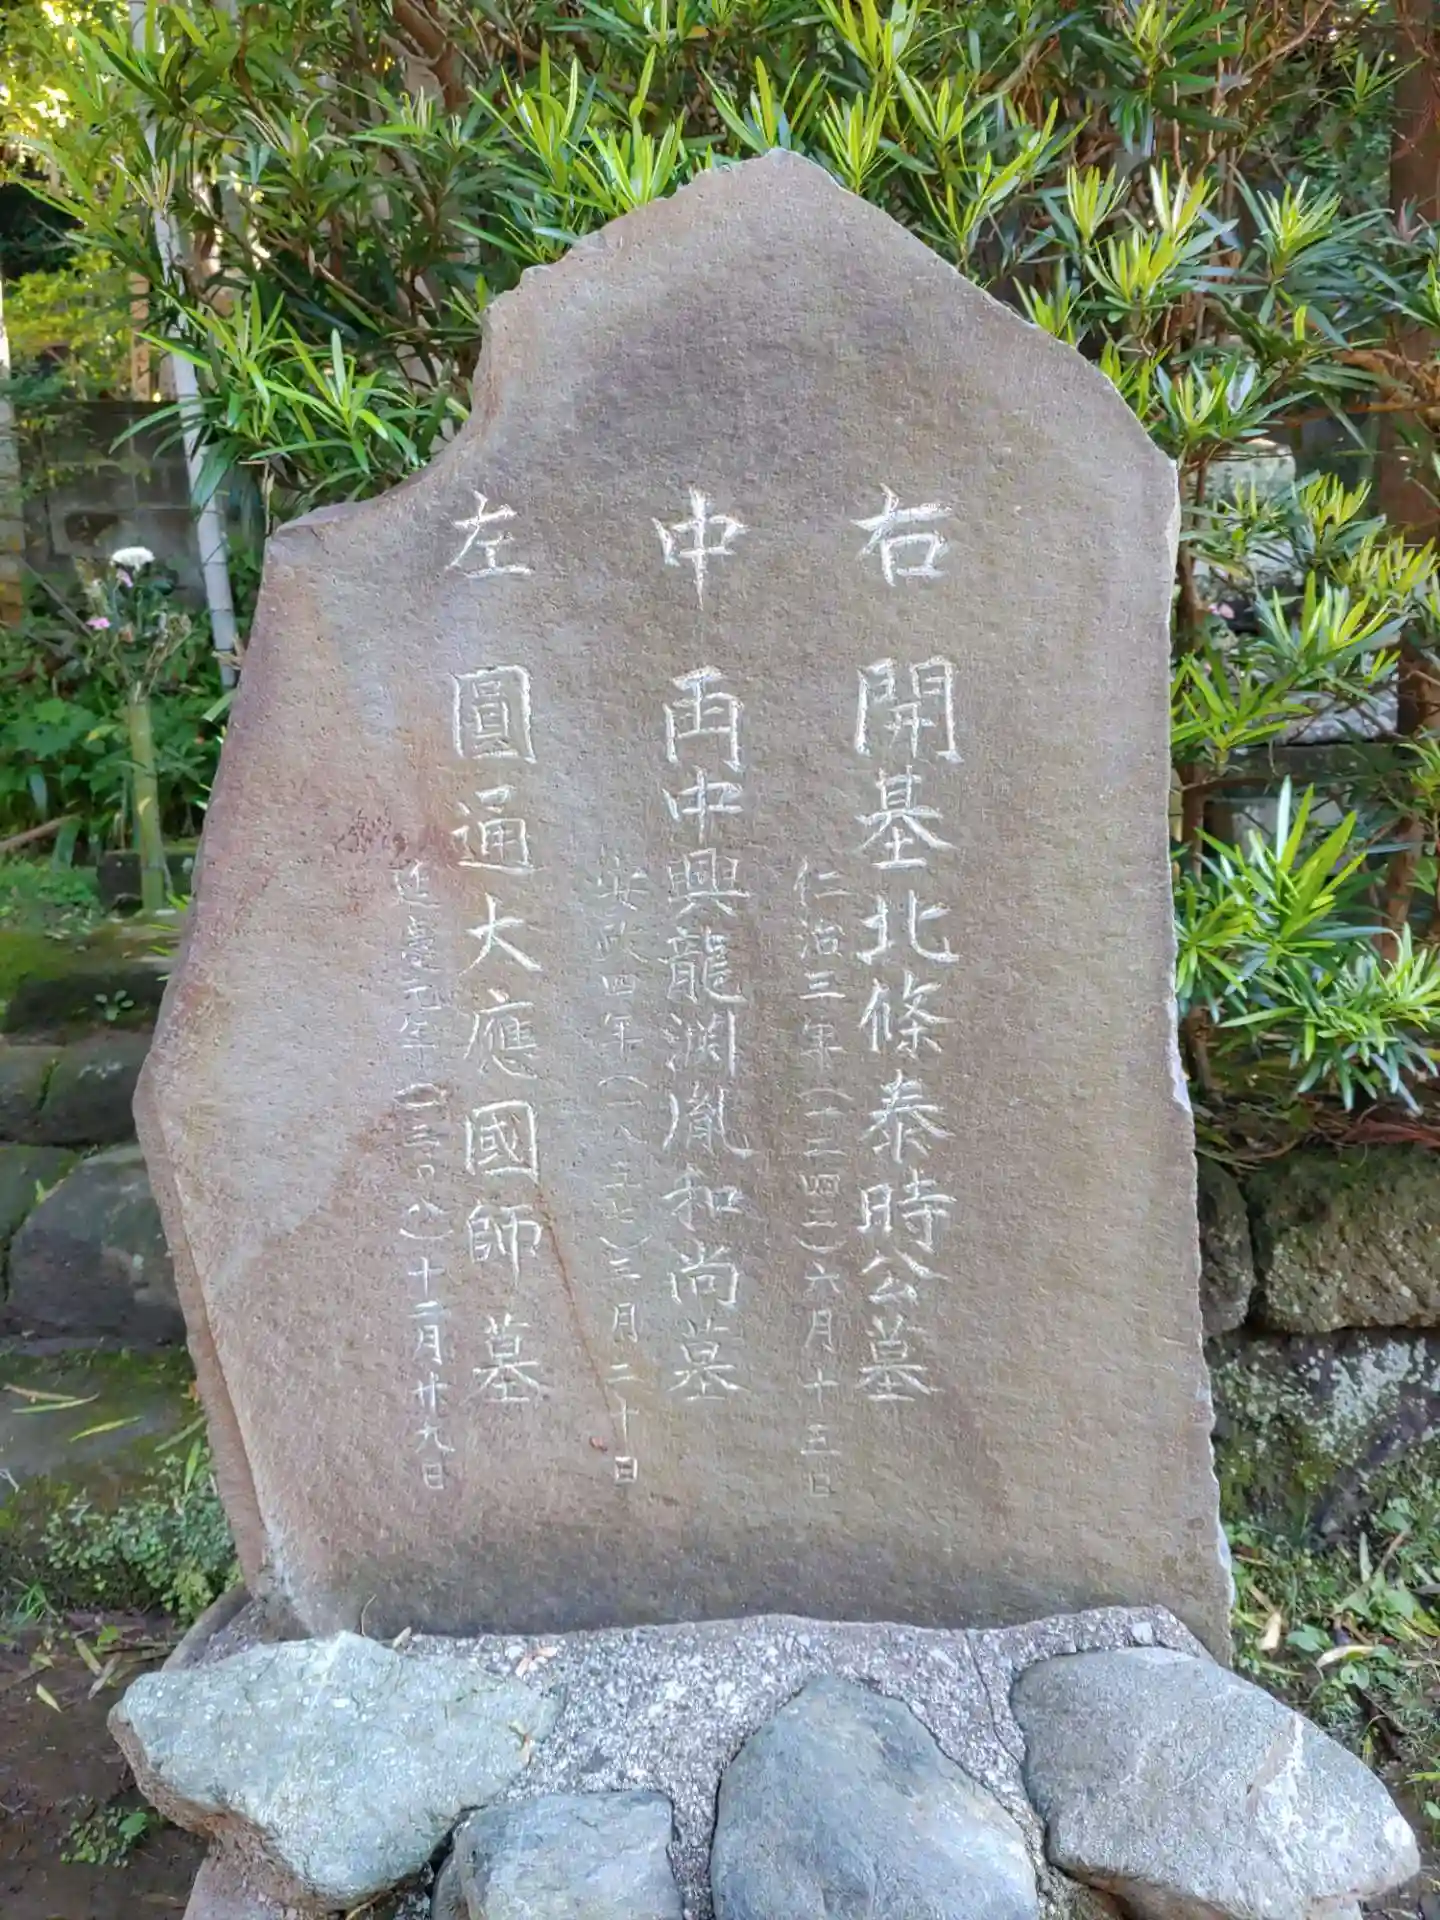 右 開基北條泰時公墓
仁治三年(一二四二)六月十三日
中 再中興龍渕胤和尚墓
安政四年(一八五七)三月二十日
左 圓通大應國師墓
延慶元年(一三〇八)十二月廿九日